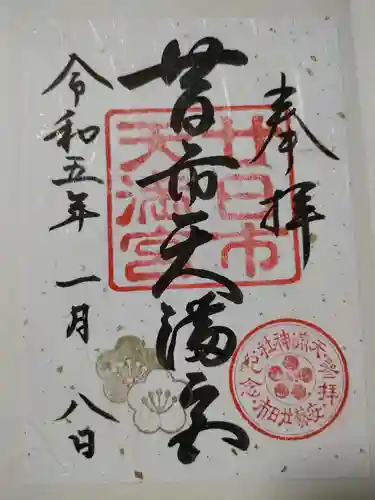 奉拝
廿日市天満宮
令和五年 一月 八日
廿日市
天満宮
天満神社
廿日市